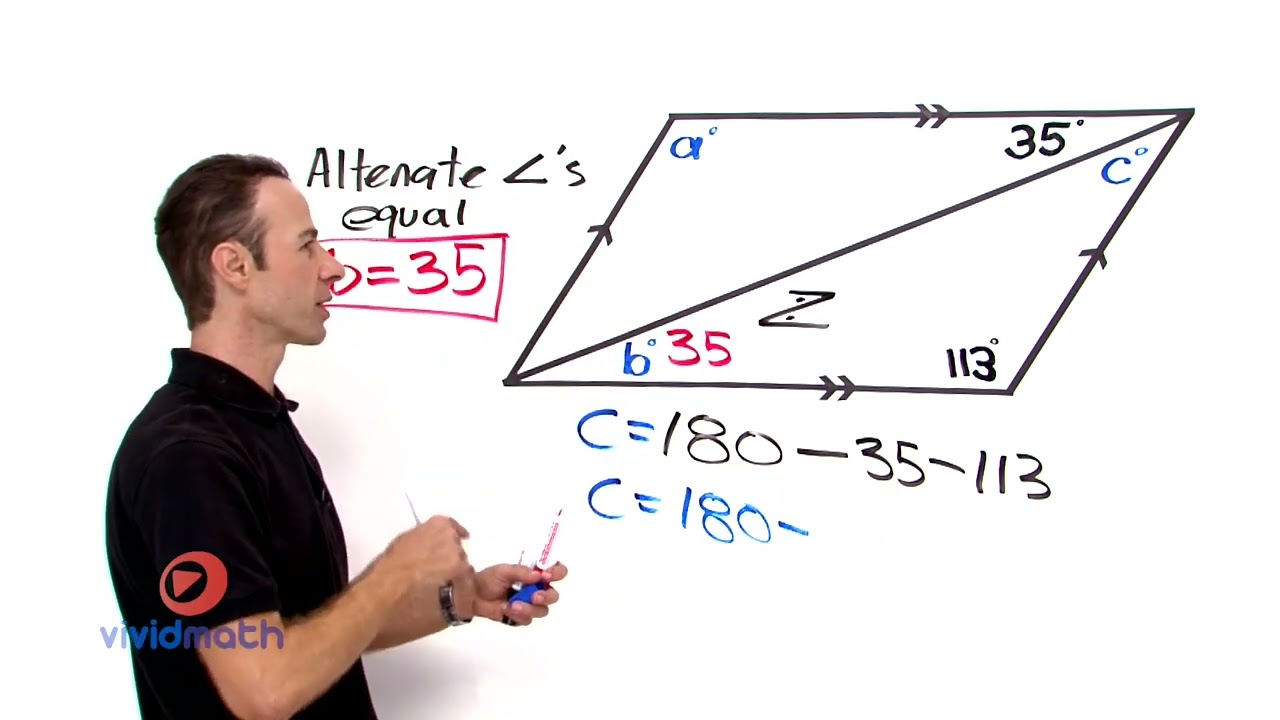 Altenate ∠'s
equal
b=35
a°
35°
c°
Z
b° 35
113°
C=180-35-113
C=180-
vividmath